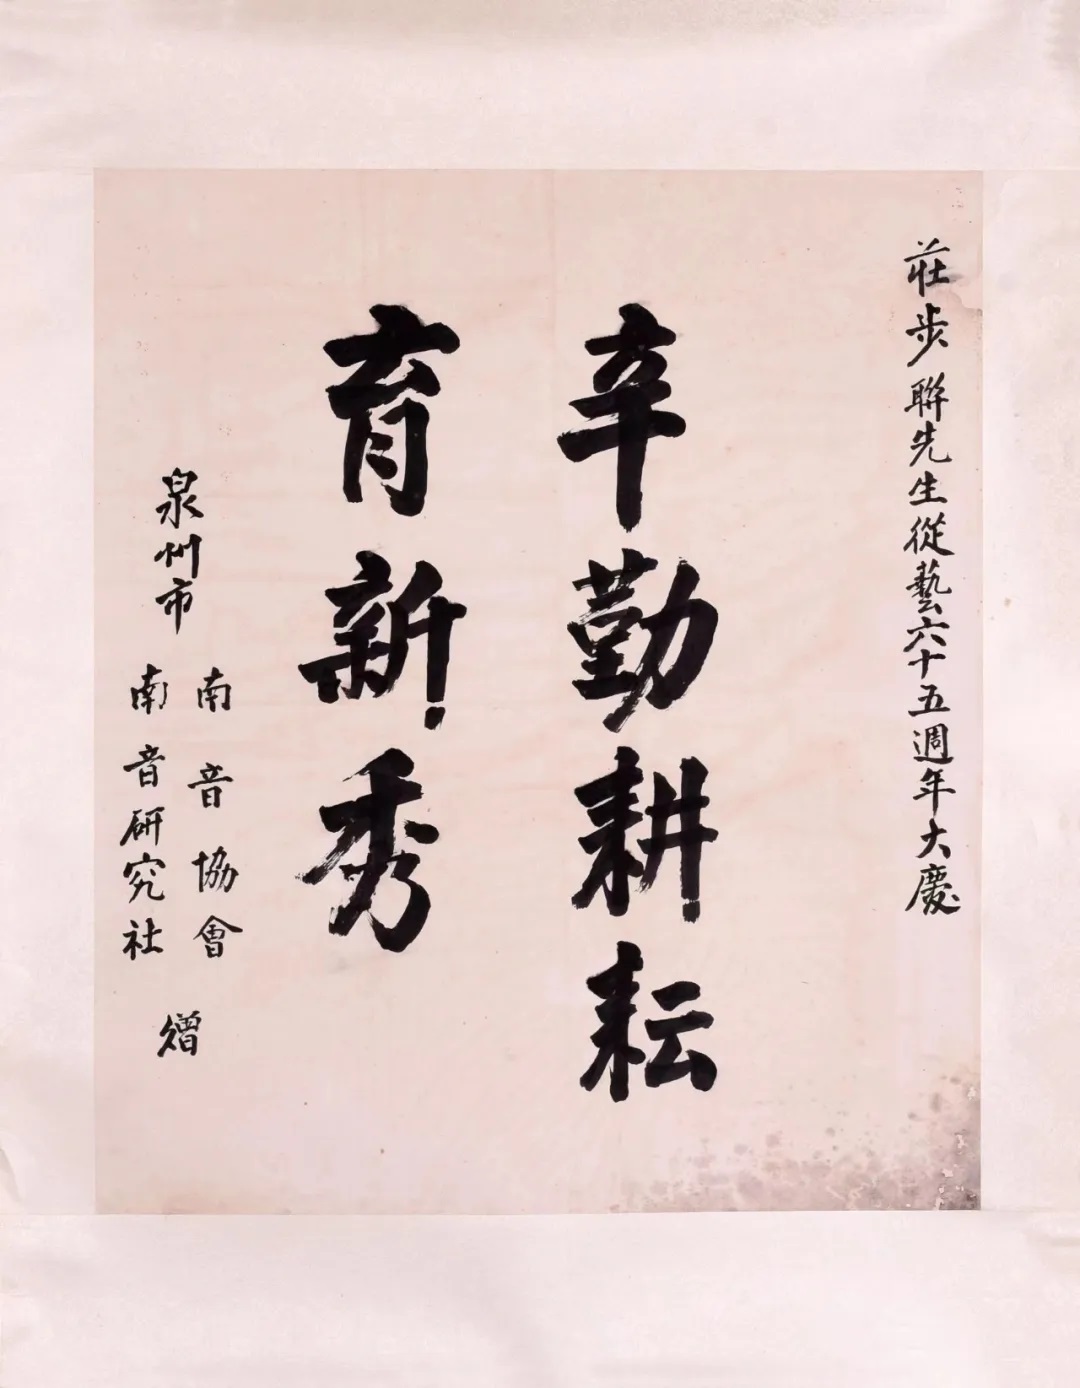 莊步聯先生從藝六十五週年大慶
辛勤耕耘
育新秀
泉州市
南音協會
南音研究社
贈